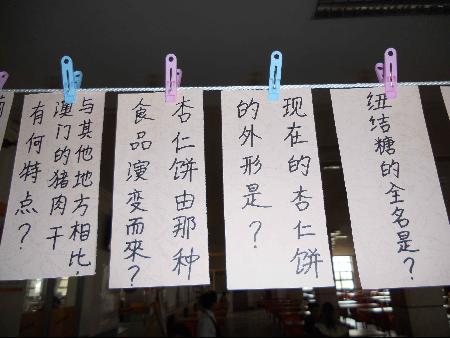 纽结糖的全名是？
现在的杏仁饼
的外形是？
杏仁饼由那种
食品演变而來？
与其他地方相比，
澳门的猪肉干
有何特点？